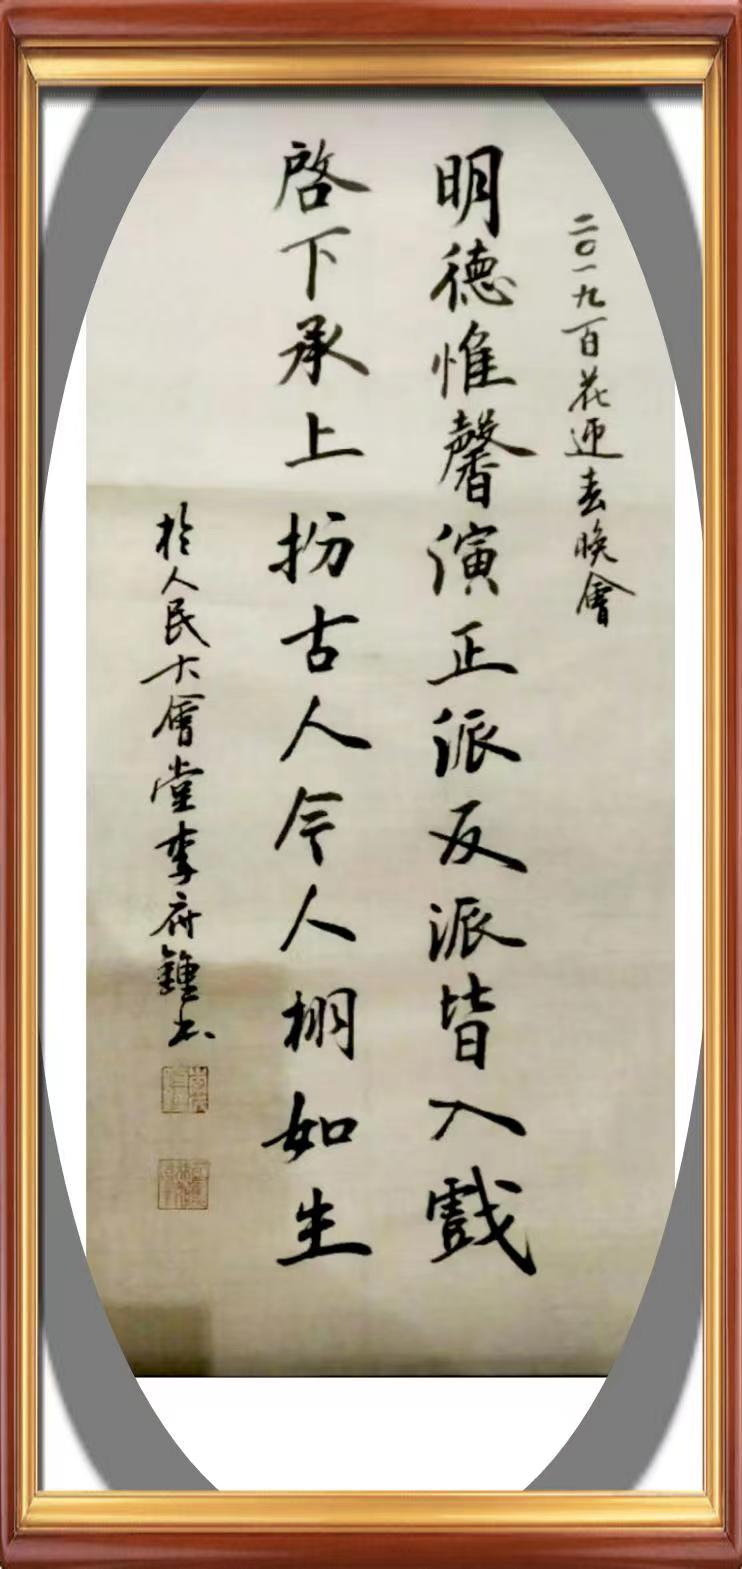 二〇一九百花迎春晚會
明德惟馨演正派反派皆入戲
啓下承上扮古人今人栩如生
於人民大會堂李府鍾书